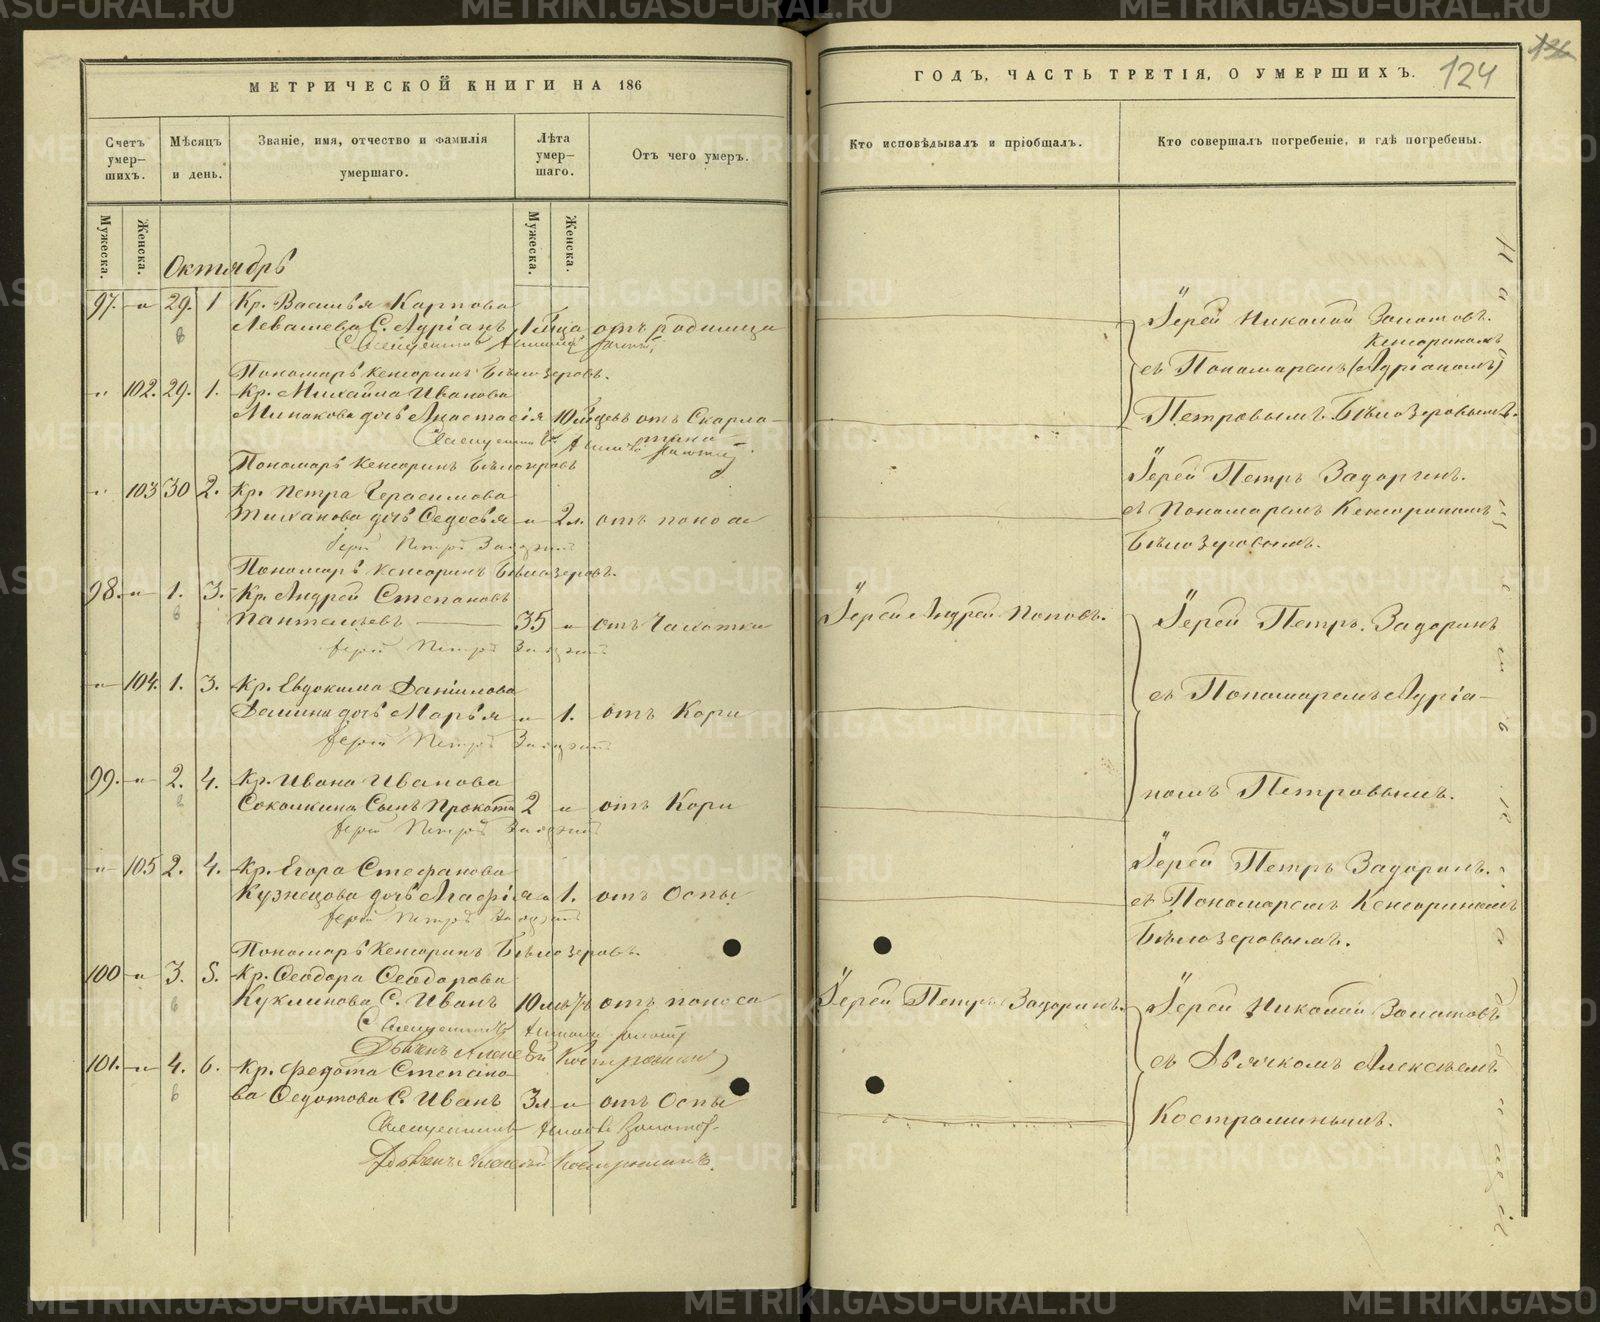 МЕТРИЧЕСКОЙ КНИГИ НА 186
Счетъ умер-шихъ.
Мѣсяцъ и день.
Званіе, имя, отчество и фамилія умершаго.
Лѣта умер-шаго.
Отъ чего умеръ.
Мужеска.
Женска.
Мужеска.
Женска.
Октябрь
97. „ 29. 1 Кр. Василья Карпова
Левашева С. Адріанъ отъ родимца
Пономарь Кенсоринъ Бѣлозеровъ.
„ 102. 29. 1. Кр. Михайла Иванова
Минакова дочь Анастасія 10 отъ Скарла-
тина
Пономарь Кенсоринъ Бѣлозеровъ
„ 103 30 2. Кр. Петра Герасимова
дочь Ѳедосья „ 2 л. отъ поноса
Іерей Петръ Задоринъ
Пономарь Кенсоринъ Бѣлозеровъ.
98. „ 1. 3. Кр. Андрей Степановъ
Пантелѣевъ 35 „ отъ Чахотки
Іерей Петръ Задоринъ
„ 104. 1. 3. Кр. Евдокима Даніилова
дочь Марья „ 1. отъ Кори
Іерей Петръ Задоринъ
99. „ 2. 4. Кр. Ивана Иванова
Соколкина Сынъ 2 „ отъ Кори
Іерей Петръ Задоринъ
„ 105 2. 4. Кр. Егора Стефанова
Кузнецова дочь Агафія „ 1. отъ Оспы
Іерей Петръ Задоринъ
Пономарь Кенсоринъ Бѣлозеровъ.
100 „ 3. 5. Кр. Ѳеодора Ѳеодорова
Куклинова С. Иванъ отъ поноса
Священникъ
Дьячекъ Алексѣй Костроминъ
101. „ 4. 6. Кр. Федота Степано-
ва Ѳедотова С. Иванъ 3 л „ отъ Оспы
Священникъ
Дьячекъ Алексѣй Костроминъ.
ГОДЪ, ЧАСТЬ ТРЕТІЯ, О УМЕРШИХЪ.
124
Кто исповѣдывалъ и пріобщалъ.
Кто совершалъ погребеніе, и гдѣ погребены.
Іерей Николай Золотовъ.
Кенсориномъ
съ Пономаремъ (Адріаномъ)
Петровымъ. Бѣлозеровымъ.
Іерей Петръ Задоринъ.
съ Пономаремъ Кенсориномъ
Бѣлозеровымъ.
Іерей Андрей Поповъ.
Іерей Петръ Задоринъ
съ Пономаремъ Адріа-
номъ Петровымъ.
Іерей Петръ Задоринъ.
съ Пономаремъ Кенсориномъ
Бѣлозеровымъ.
Іерей Петръ Задоринъ.
Іерей Николай Золотовъ
съ Дьячкомъ Алексѣемъ
Костроминымъ.
METRIKI.GASO-URAL.RU